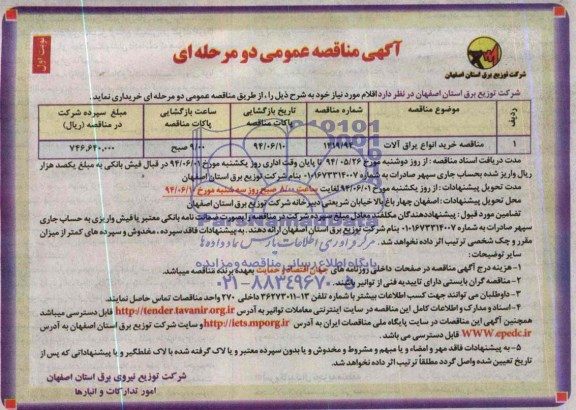 نوبت اول
آگهی مناقصه عمومی دو مرحله ای
شرکت توزیع برق استان اصفهان
شرکت توزیع برق استان اصفهان در نظر دارد اقلام مورد نیاز خود به شرح ذیل را، از طریق مناقصه عمومی دو مرحله ای خریداری نماید.
ردیف موضوع مناقصه شماره مناقصه تاریخ بازگشایی پاکات مناقصه ساعت بازگشایی پاکات مناقصه مبلغ سپرده شرکت در مناقصه (ریال)
۱ مناقصه خرید انواع یراق آلات ۹۴/۰۶/۱۰ ۹/۰۰ صبح ۷۴۶,۶۴۰,۰۰۰
مدت دریافت اسناد مناقصه : از روز دوشنبه مورخ ۹۴/۰۵/۲۶ تا پایان وقت اداری روز یکشنبه مورخ ۹۴/۰۶/۰۱ در قبال فیش بانکی به مبلغ یکصد هزار
ریال واریز شده بحساب جاری سپهر صادرات به شماره ۰۱۰۱۶۷۳۳۱۴۰۰۷ بنام شرکت توزیع برق استان اصفهان
مدت تحویل پیشنهادات : از روز یکشنبه مورخ ۹۴/۰۶/۰۱ لغایت ساعت ۸/۰۰ صبح روز سه شنبه مورخ ۹۴/۰۶/۱۰
محل تحویل پیشنهادات : اصفهان چهار باغ بالا خیابان شریعتی دبیرخانه شرکت توزیع برق استان اصفهان
تضامین مورد قبول : پیشنهاددهندگان مکلفند معادل مبلغ سپرده شرکت در مناقصه را بصورت ضمانت نامه بانکی معتبر یا فیش واریزی به حساب جاری
سپهر صادرات به شماره ۰۱۰۱۶۷۳۳۱۴۰۰۷ بنام شرکت توزیع برق استان اصفهان ارائه دهند. به پیشنهادات فاقد سپرده ، مخدوش و سپرده های کمتر از میزان
مقرر و چک شخصی ترتیب اثر داده نخواهد شد.
سایر توضیحات :
۱- هزینه درج آگهی مناقصه در صفحات داخلی روزنامه های جهان اقتصاد و حمایت بعهده برنده مناقصه میباشد.
۲- مناقصه گران بایستی دارای تاییدیه فنی از توانیر باشند.
۳- داوطلبان می توانند جهت کسب اطلاعات بیشتر با شماره تلفن ۱۳-۳۶۲۷۳۰۱۱ داخلی ۲۷۰ واحد مناقصات تماس حاصل نمایند.
۴- اسناد و مدارک و اطلاعات کامل این مناقصه در سایت اینترنتی معاملات توانیر به آدرس http://tender.tavanir.org.ir قابل دسترسی میباشد
همچنین آگهی این مناقصات در سایت پایگاه ملی مناقصات ایران به آدرس http://iets.mporg.ir و سایت شرکت توزیع برق استان اصفهان به آدرس
WWW.epedc.ir قابل دسترسی می باشد.
۵- به پیشنهادات فاقد مهر و امضاء و یا مبهم و مشروط و مخدوش و یا بدون سپرده معتبر و یا لاک گرفته شده با لاک غلطگیر و یا پیشنهاداتی که پس از
تاریخ تعیین شده واصل گردد مطلقا ترتیب اثر داده نخواهد شد.
شرکت توزیع نیروی برق استان اصفهان
امور تدارکات و انبارها
ParsNamadData
مرکز فرآوری اطلاعات پارس نماد داده ها
پایگاه اطلاع رسانی مناقصه و مزایده
۰۲۱-۸۸۳۴۹۶۷۰-۵